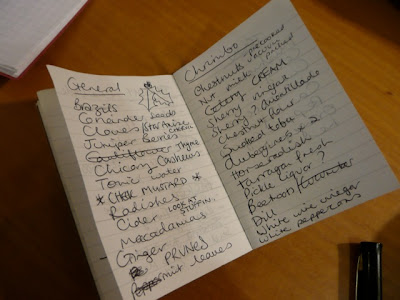 General
Brazils
Coriander seeds
Cloves / STAR Anise
Juniper Berries
Cauliflower Thyme
Chicory Cashews
Tonic Water
* CHECK MUSTARD *
Radishes
Cider LOOK AT STUFFIN.
Macadamias
Ginger
PRUNES
Peppermint leaves
Chrimbo
Chestnuts PRECOOKED VACUUM packed
Nut milk
Celery CREAM
Sherry vinegar
Sherry ?
Chestnut flour
Smoked tofu
Aubergines * 2
Horseradish
Tarragon fresh
Pickle liquor ?
Beetroot
Dill
White wine vinegar
White peppercorns